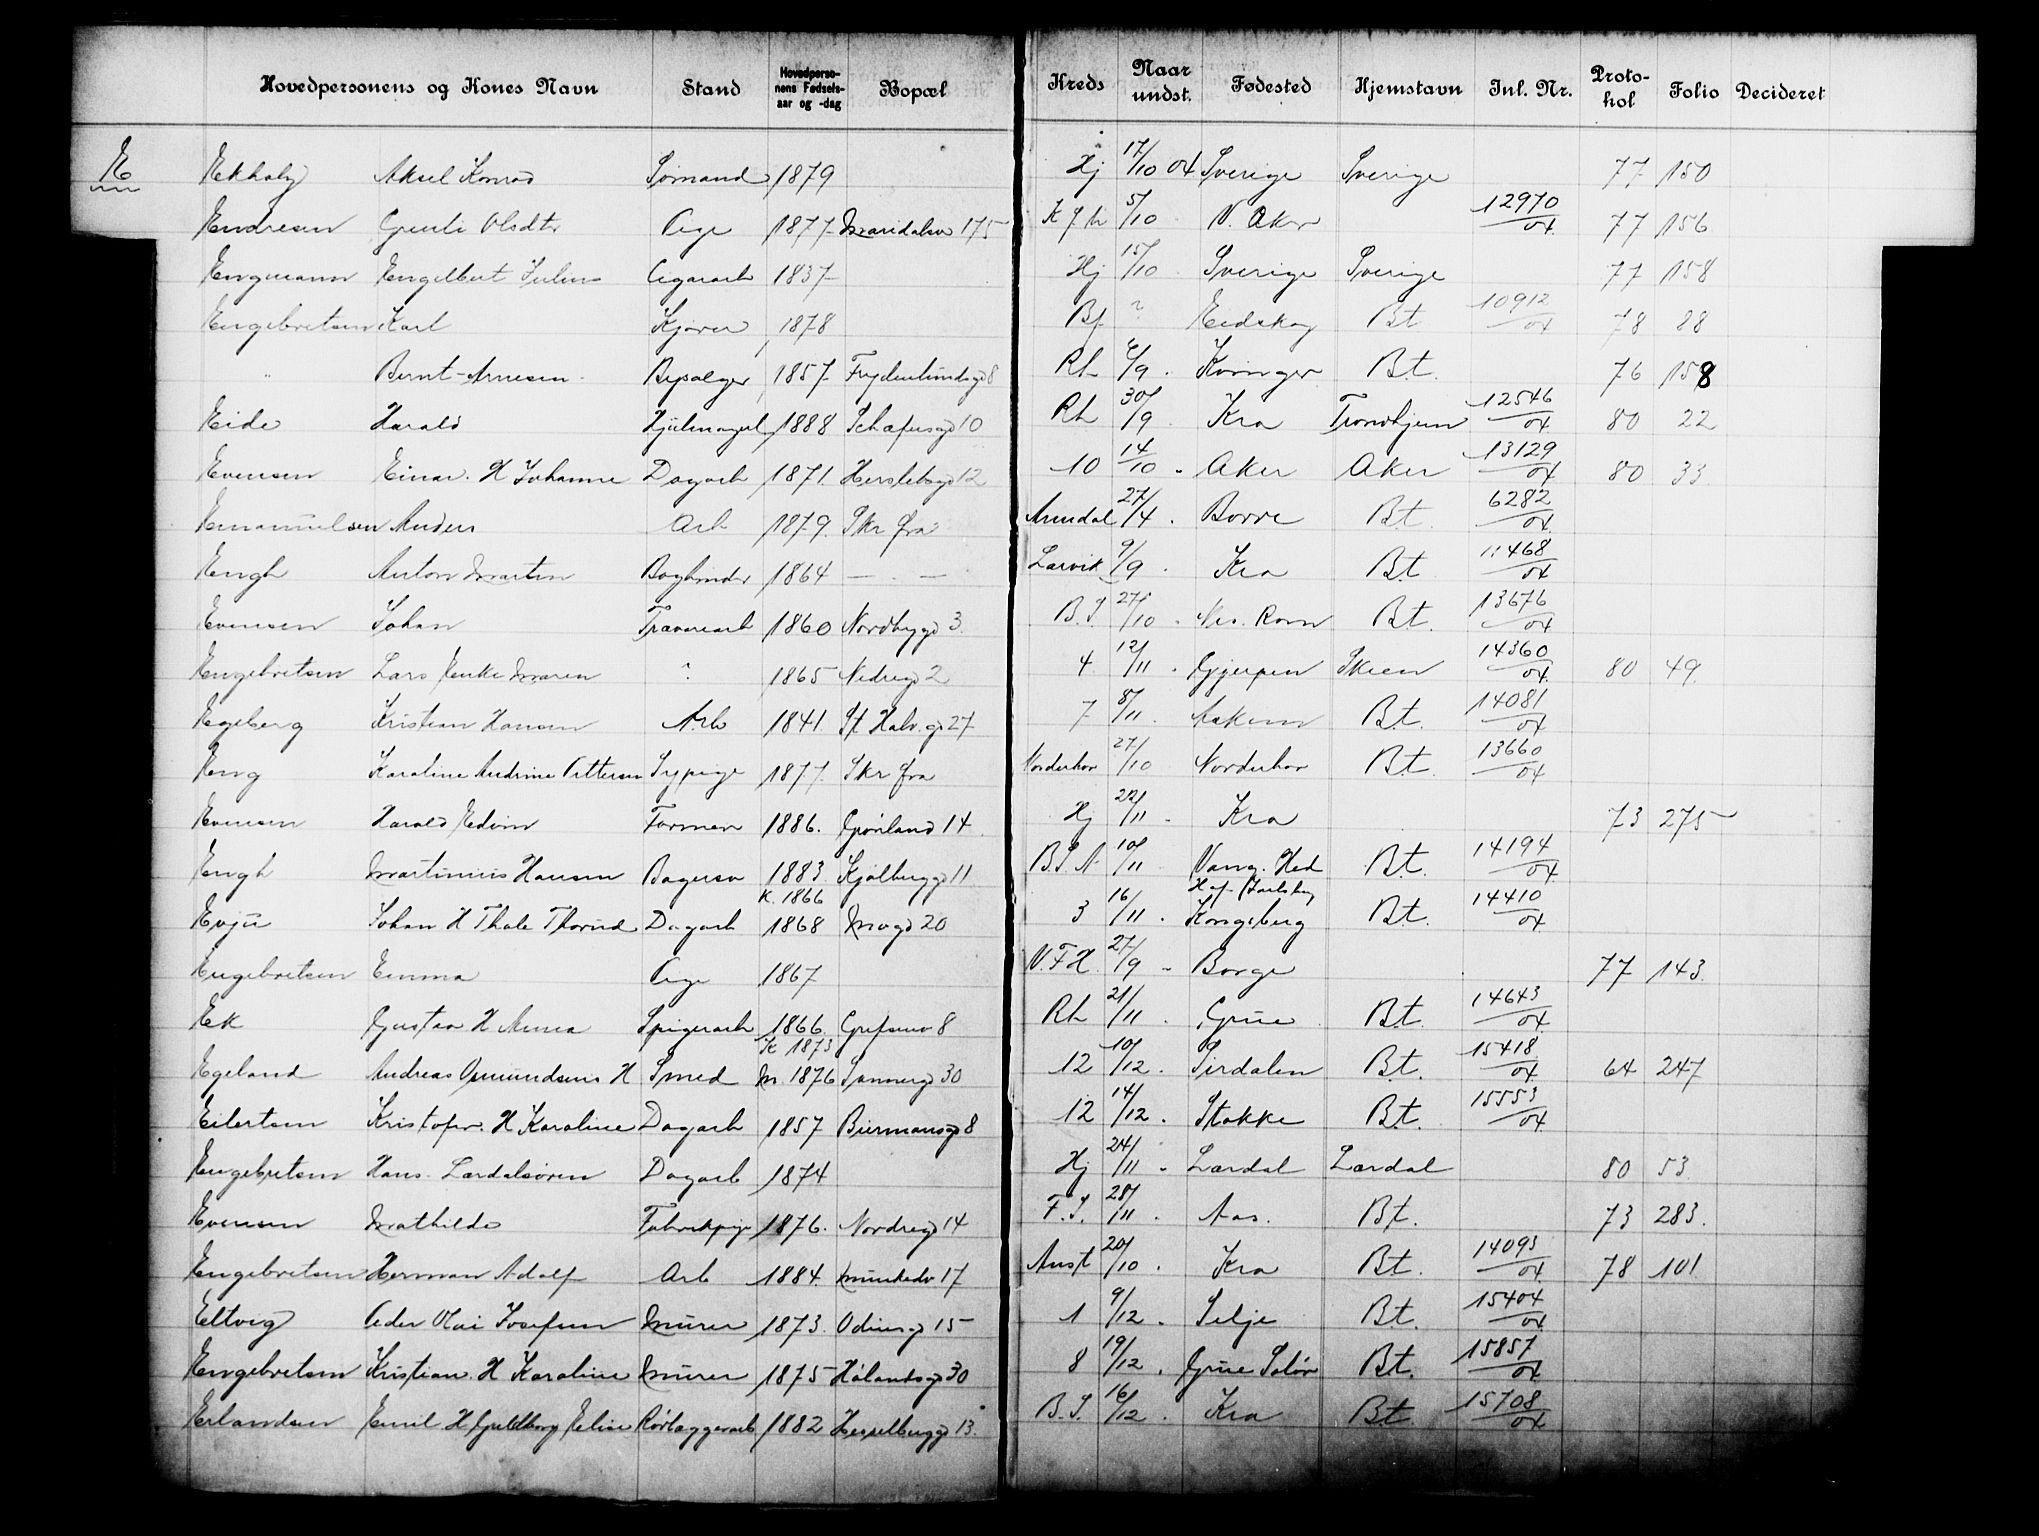 Hovedpersonens og Kones Navn Stand Hovedperso-nens Fødsels-aar og -dag Bopæl Kreds Naar undst. Fødested Hjemstavn Inl. Nr. Proto-kol Folio Decideret
E
Ekholy Aksel Konrad Sømand 1879 Hj 17/10 04 Sverige Sverige 77 150
Endresen Gunli Olsdtr Pige 1877 Maridalsv 175 5/10 V. Aker 12970/04 77 156
Engmann Engelbert Julius Cigararb 1837 Hj 15/10 Sverige Sverige 77 158
Engebretsen Karl Kjører 1878 Bf ? Eidskog Bt 10912/04 78 88
" Bernt Arnesen Bypælger 1857 Frydenlundsgd 8 Rh 6/9 Kvinger Bt. 76 158
Eide Harald Hjulmagerl 1888 Schafersgd 10 Rh 30/9 Kra Trondhjem 12546/04 80 22
Evensen Einar. H Johanne Dagarb 1871. Herslebsgd 12 10 14/10 Aker Aker 13129/04 80 33
Emanuelsen Anders Arb 1879. Skr fra Arendal 27/4 Borre Bt. 6282/04
Engh Anton Martin Bogbinder 1864 — . — Larvik 9/9 Kra Bt 11468/04
Evensen Johan Trævarearb 1860 Nordbygd 3. B.S. 27/10 Nes. Rom Bt. 13676/04
Engebretsen Lars Enke Maren ? 1865 Nedregd 2 4 12/11 Gjerpen Skien 14360/04 80 49.
Egeberg Kristian Hansen Arb 1841. St Halv. gd 27 7 8/11 Askim Bt. 14081/04
Eng Karoline Andrine Pettersen Sypige 1877. Skr fra Norderhov 27/10 Norderhov Bt. 13660/04
Evensen Harald Edvin Formen 1886. Grønland 14 Hj 22/11 Kra 73 275
Engh Martinius Hansen Bagersv 1883. Kjølberggd 11 B.S.A 10/11 Vang. Hed Bt. 14194/04
K. 1866 Hof. Jarlsberg
Evju Johan H Thale Thorud Dagarb 1868 Mogd 20 3 16/11 Kongsberg Bt. 14410/04
Engebretsen Emma Pige 1867 V.F.H. 27/9 Borge 77 143.
Ek Gustav H Anna Spigerarb 1866. Grefsenv 8 Rh 21/11 Grue Bt. 14643/04
K 1873
Egeland Andreas Omundsens H Smed M. 1876 Sannergd 30 12 10/12 Sirdalen Bt. 15418/04 64 247
Eilertsen Kristofer. H Karoline Dagarb 1857 Biermansgd 8 12 14/12 Stokke Bt. 15553/04
Engebretsen Hans. Lærdalsøren Dagarb 1874 Hj 24/11 Lærdal Lærdal 80 53
Evensen Mathilde Fabrikpige 1876. Nordregd 14 F.S. 28/11 Aas. Bt. 73 283.
Engebretsen Herman Adolf Arb 1884. Munkedv 17 Anst 20/10 Kra Bt. 14093/04 78 101
Eltvig Peder Olai Josefsen Murer 1873. Odinsgd 15 1 9/12 Selje Bt. 15404/04
Engebretsen Kristian. H Karoline Murer 1875 Hølandsgd 30 8 19/12 Grue Solør Bt. 15857/04
Erlandsen Emil H Guldborg Elise Rørlæggerarb 1882 Hesselberggd 13. B.S. 16/12 Kra Bt 15708/04